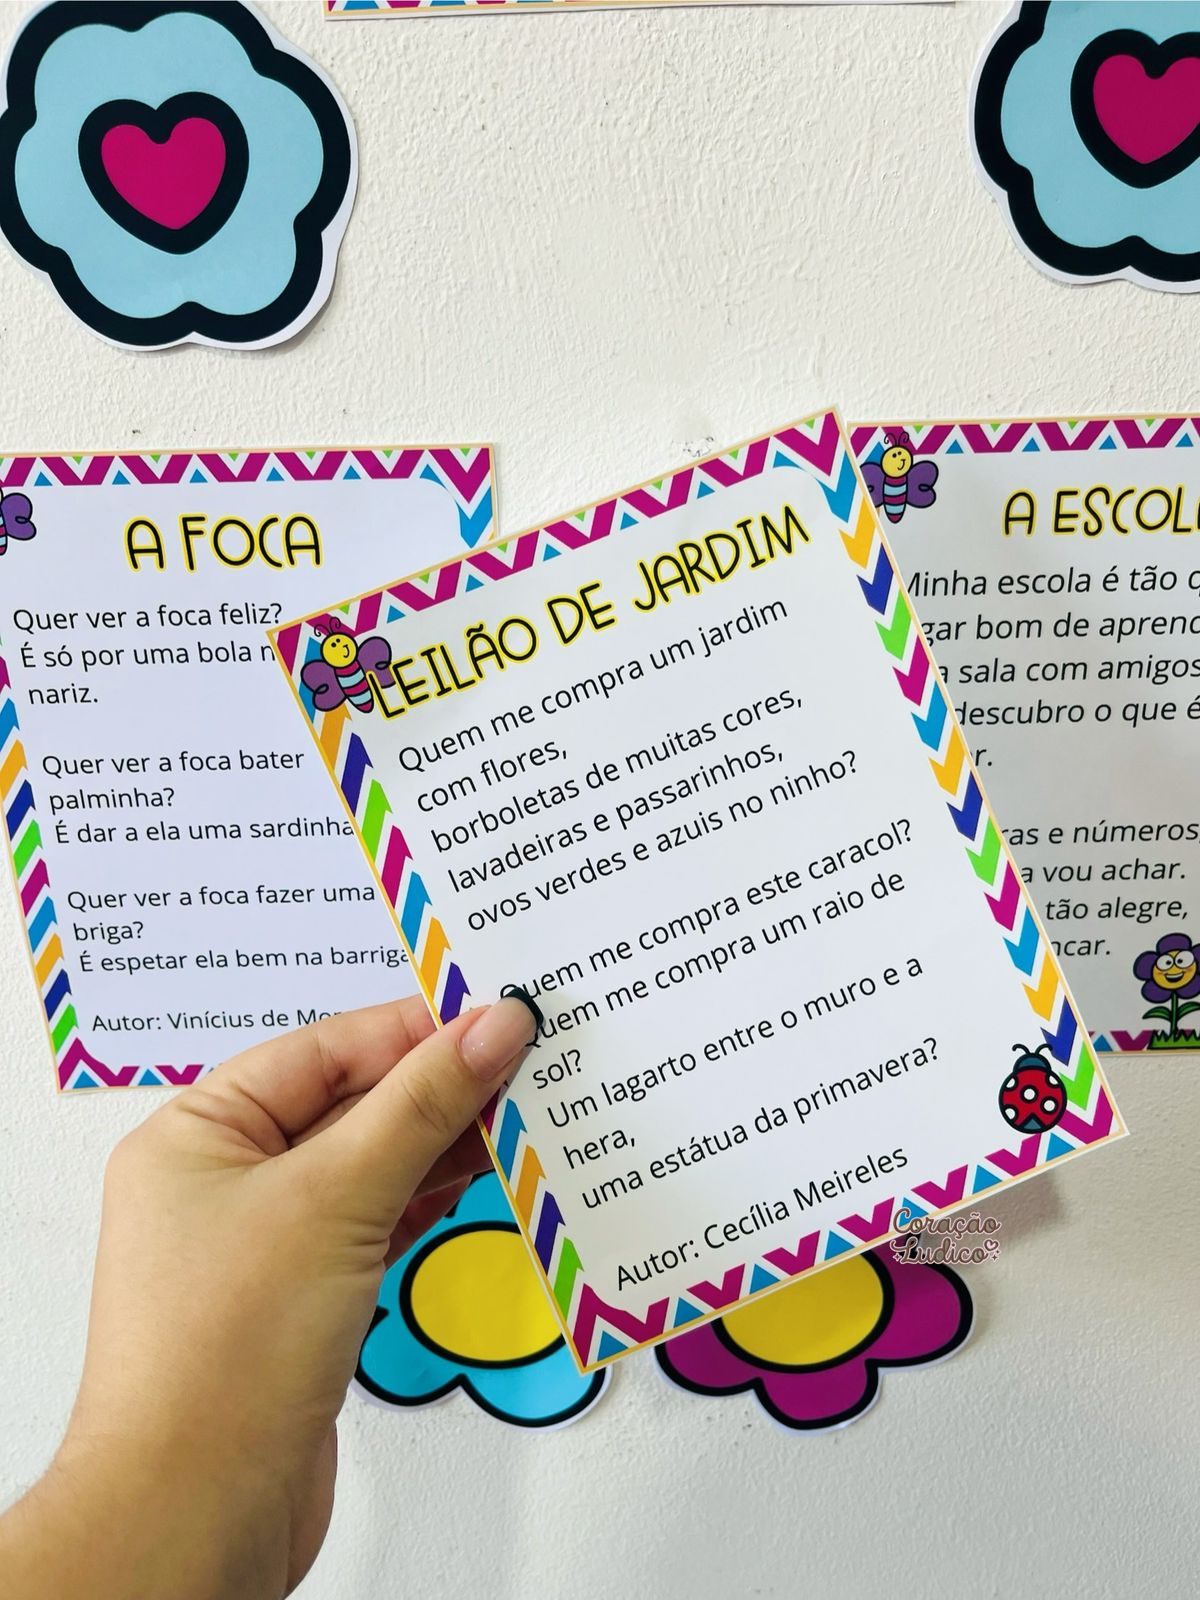 A FOCA
Quer ver a foca feliz?
É só por uma bola
nariz.
Quer ver a foca bater
palminha?
É dar a ela uma sardinha
Quer ver a foca fazer uma
briga?
É espetar ela bem na barriga
Autor: Vinícius de
LEILÃO DE JARDIM
Quem me compra um jardim
com flores,
borboletas de muitas cores,
lavadeiras e passarinhos,
ovos verdes e azuis no ninho?
Quem me compra este caracol?
Quem me compra um raio de
sol?
Um lagarto entre o muro e a
hera,
uma estátua da primavera?
Autor: Cecília Meireles
A ESCOL
Minha escola é tão
bom de
sala com amigos
descubro o que é
e números,
vou achar.
tão alegre,
Coração
Ludico